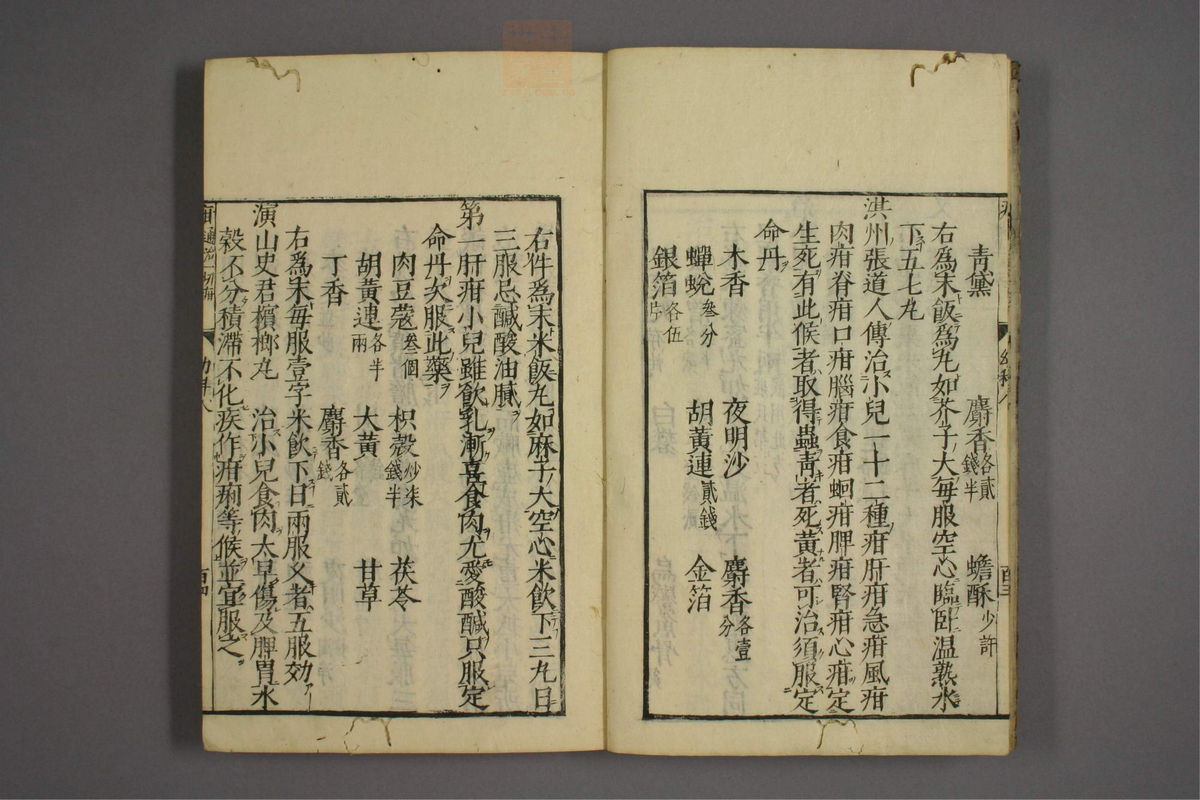 青黛 麝香各貳錢半 蟾酥少許
右爲末飯爲丸如芥子大毎服空心臨臥温熟水
下五七丸
洪州張道人傳治小兒一十二種疳肝疳急疳風疳
肉疳脊疳口疳腦疳食疳蛔疳脾疳腎疳心疳定
生死有此候者取得蟲青者死黃者可治須服定
命丹
木香 夜明沙 麝香各壹分
蟬蛻叁分 胡黃連貳錢 金箔
銀箔各伍片
右件爲末米飯丸如麻子大空心米飲下三丸日
三服忌鹹酸油膩
第一肝疳小兒雖飲乳漸喜食肉尤愛酸鹹只服定
命丹次服此藥
肉豆蔻叁個 枳殼炒柒錢半 茯苓
胡黃連各半兩 大黃 甘草
丁香 麝香各貳錢
右爲末毎服壹字米飲下日兩服乂者五服効
演山史君檳榔丸 治小兒食肉太早傷及脾胃水
穀不分積滯不化疾作疳痢等候並宜服之
幼科八
百四